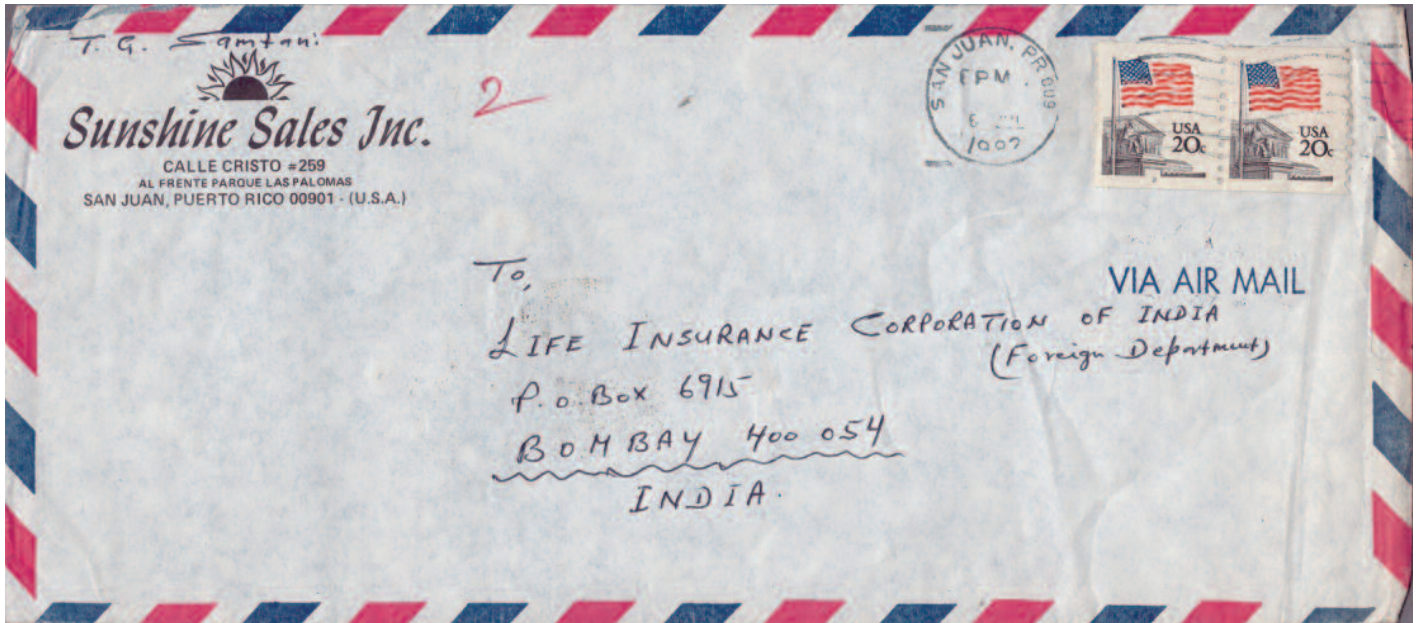 T. G. Samtani
Sunshine Sales Inc.
CALLE CRISTO #259
AL FRENTE PARQUE LAS PALOMAS
SAN JUAN, PUERTO RICO 00901 - (U.S.A.)
2
SAN JUAN, PR 009
PM
USA
20c
USA
20c
VIA AIR MAIL
To,
LIFE INSURANCE CORPORATION OF INDIA
(Foreign Department)
P.O. Box 6915
BOMBAY 400 054
INDIA.